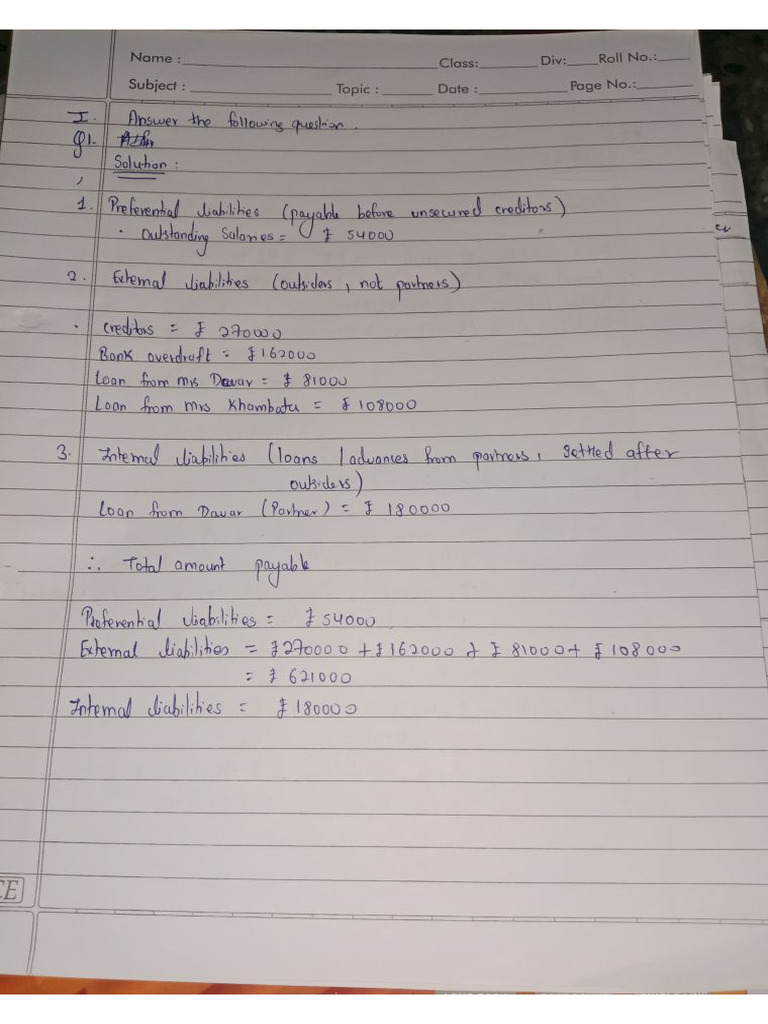 Name : Class: Div: Roll No.:
Subject : Topic : Date : Page No.:
I. Answer the following question.
Q1.
Solution :
1. Preferential liabilities (payable before unsecured creditors)
• Outstanding Salaries = ₹ 54000
2. External liabilities (outsiders, not partners)
• Creditors = ₹ 270000
Bank overdraft = ₹162000
Loan from mrs Davar = ₹ 81000
Loan from mrs Khambata = ₹108000
3. Internal liabilities (loans / advances from partners, settled after
outsiders)
Loan from Davar (Partner) = ₹ 180000
∴ Total amount payable
Preferential liabilities = ₹54000
External liabilities = ₹270000 + ₹162000 + ₹ 81000 + ₹108000
= ₹ 621000
Internal liabilities = ₹180000
CE